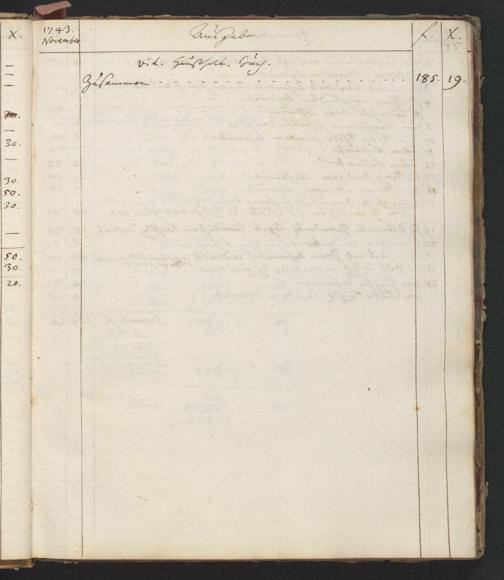 X.
30.
30.
50.
30.
50.
30.
20.
1743. Ausgaben. f. X.
November
75
vid. Haushalt. Buch.
Zusammen . . . . . . . . . . . . . . . . . . 185. 19.